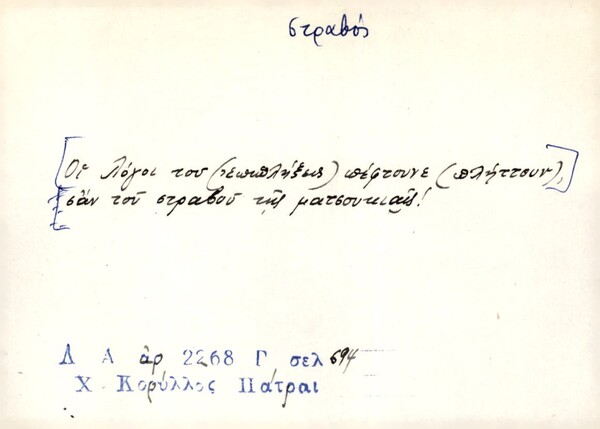 στραβός
[Οἱ λόγοι του (ἐπιπλήξεις) πέφτουνε (πλήττουν),
σὰν τοῦ στραβοῦ τῆς ματσουκιαῖς!
Λ Α ἀρ 2268 Γ σελ 694
Χ. Κορύλλος Πάτραι